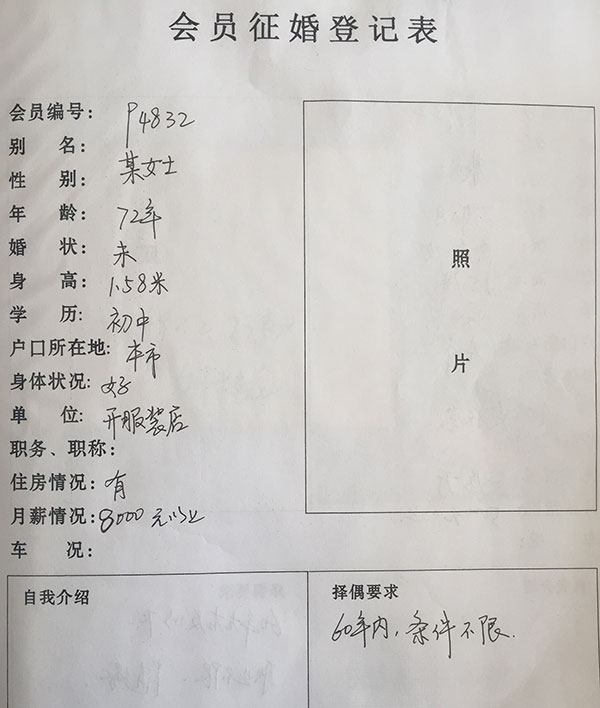 会员征婚登记表
会员编号: P4832
别 名:
性 别: 某女士
年 龄: 72年
婚 状: 未
身 高: 1.58米
学 历: 初中
户口所在地: 本市
身体状况: 好
单 位: 开服装店
职务、职称:
住房情况: 有
月薪情况: 8000元以上
车 况:
照
片
自我介绍
择偶要求
60年内,条件不限.